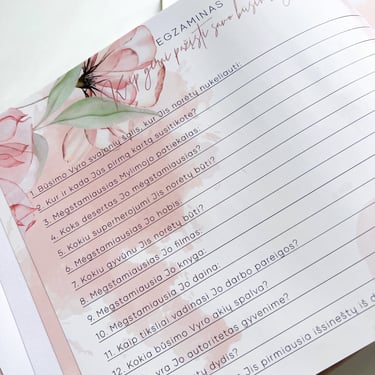 EGZAMINAS
Kaip gerai pažįsti savo būsimą
1. Būsimo Vyro svajonių šalis, kur Jis norėtų nukeliauti:
2. Kur ir kada Jūs pirmą kartą susitikote?
3. Mėgstamiausias Mylimojo patiekalas:
4. Koks desertas Jo mėgstamiausias?
5. Kokiu superherojumi Jis norėtų būti?
6. Mėgstamiausias Jo hobis:
7. Kokiu gyvūnu Jis norėtų būti?
8. Mėgstamiausias Jo filmas:
9. Mėgstamiausia Jo knyga:
10. Mėgstamiausia Jo daina:
11. Kaip tiksliai vadinasi Jo darbo pareigos?
12. Kokia būsimo Vyro akių spalva?
yra Jo autoritetas gyvenime?
dydis?
Jis pirmiausia išsineštų iš